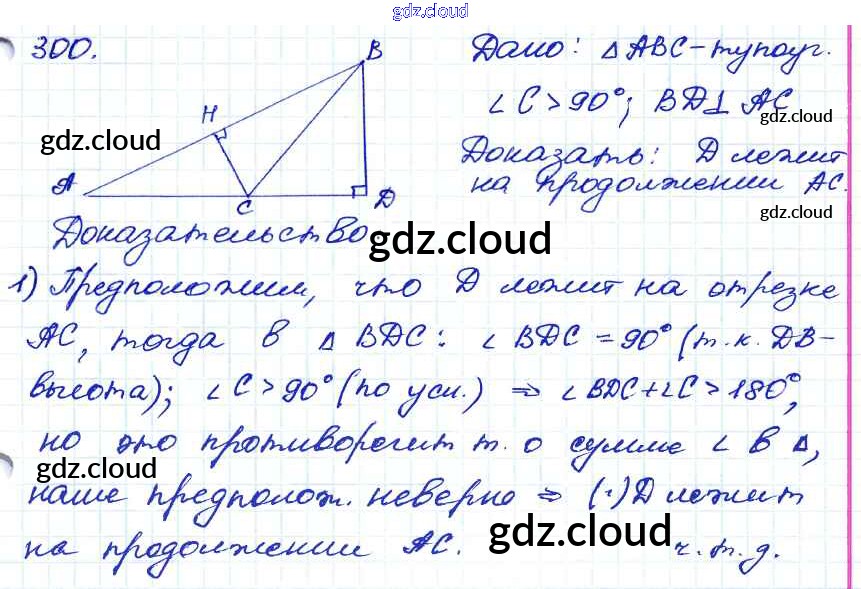 gdz.cloud
300.
B
H
A
C
D
Дано: △ABC-тупоуг.
∠C>90°; BD⊥AC
gdz.cloud
gdz.cloud
Доказать: D лежит
на продолжении AC.
gdz.cloud
Доказательство
gdz.cloud
1) Предположим, что D лежит на отрезке
AC, тогда в △BDC: ∠BDC=90° (т.к. DB-
высота); ∠C>90° (по усл.) ⇒ ∠BDC+∠C>180°,
но это противоречит т. о сумме ∠ в △,
gdz.cloud
наше предполож. неверно ⇒ (·) D лежит
на продолжении AC.
gdz.cloud
ч.т.д.